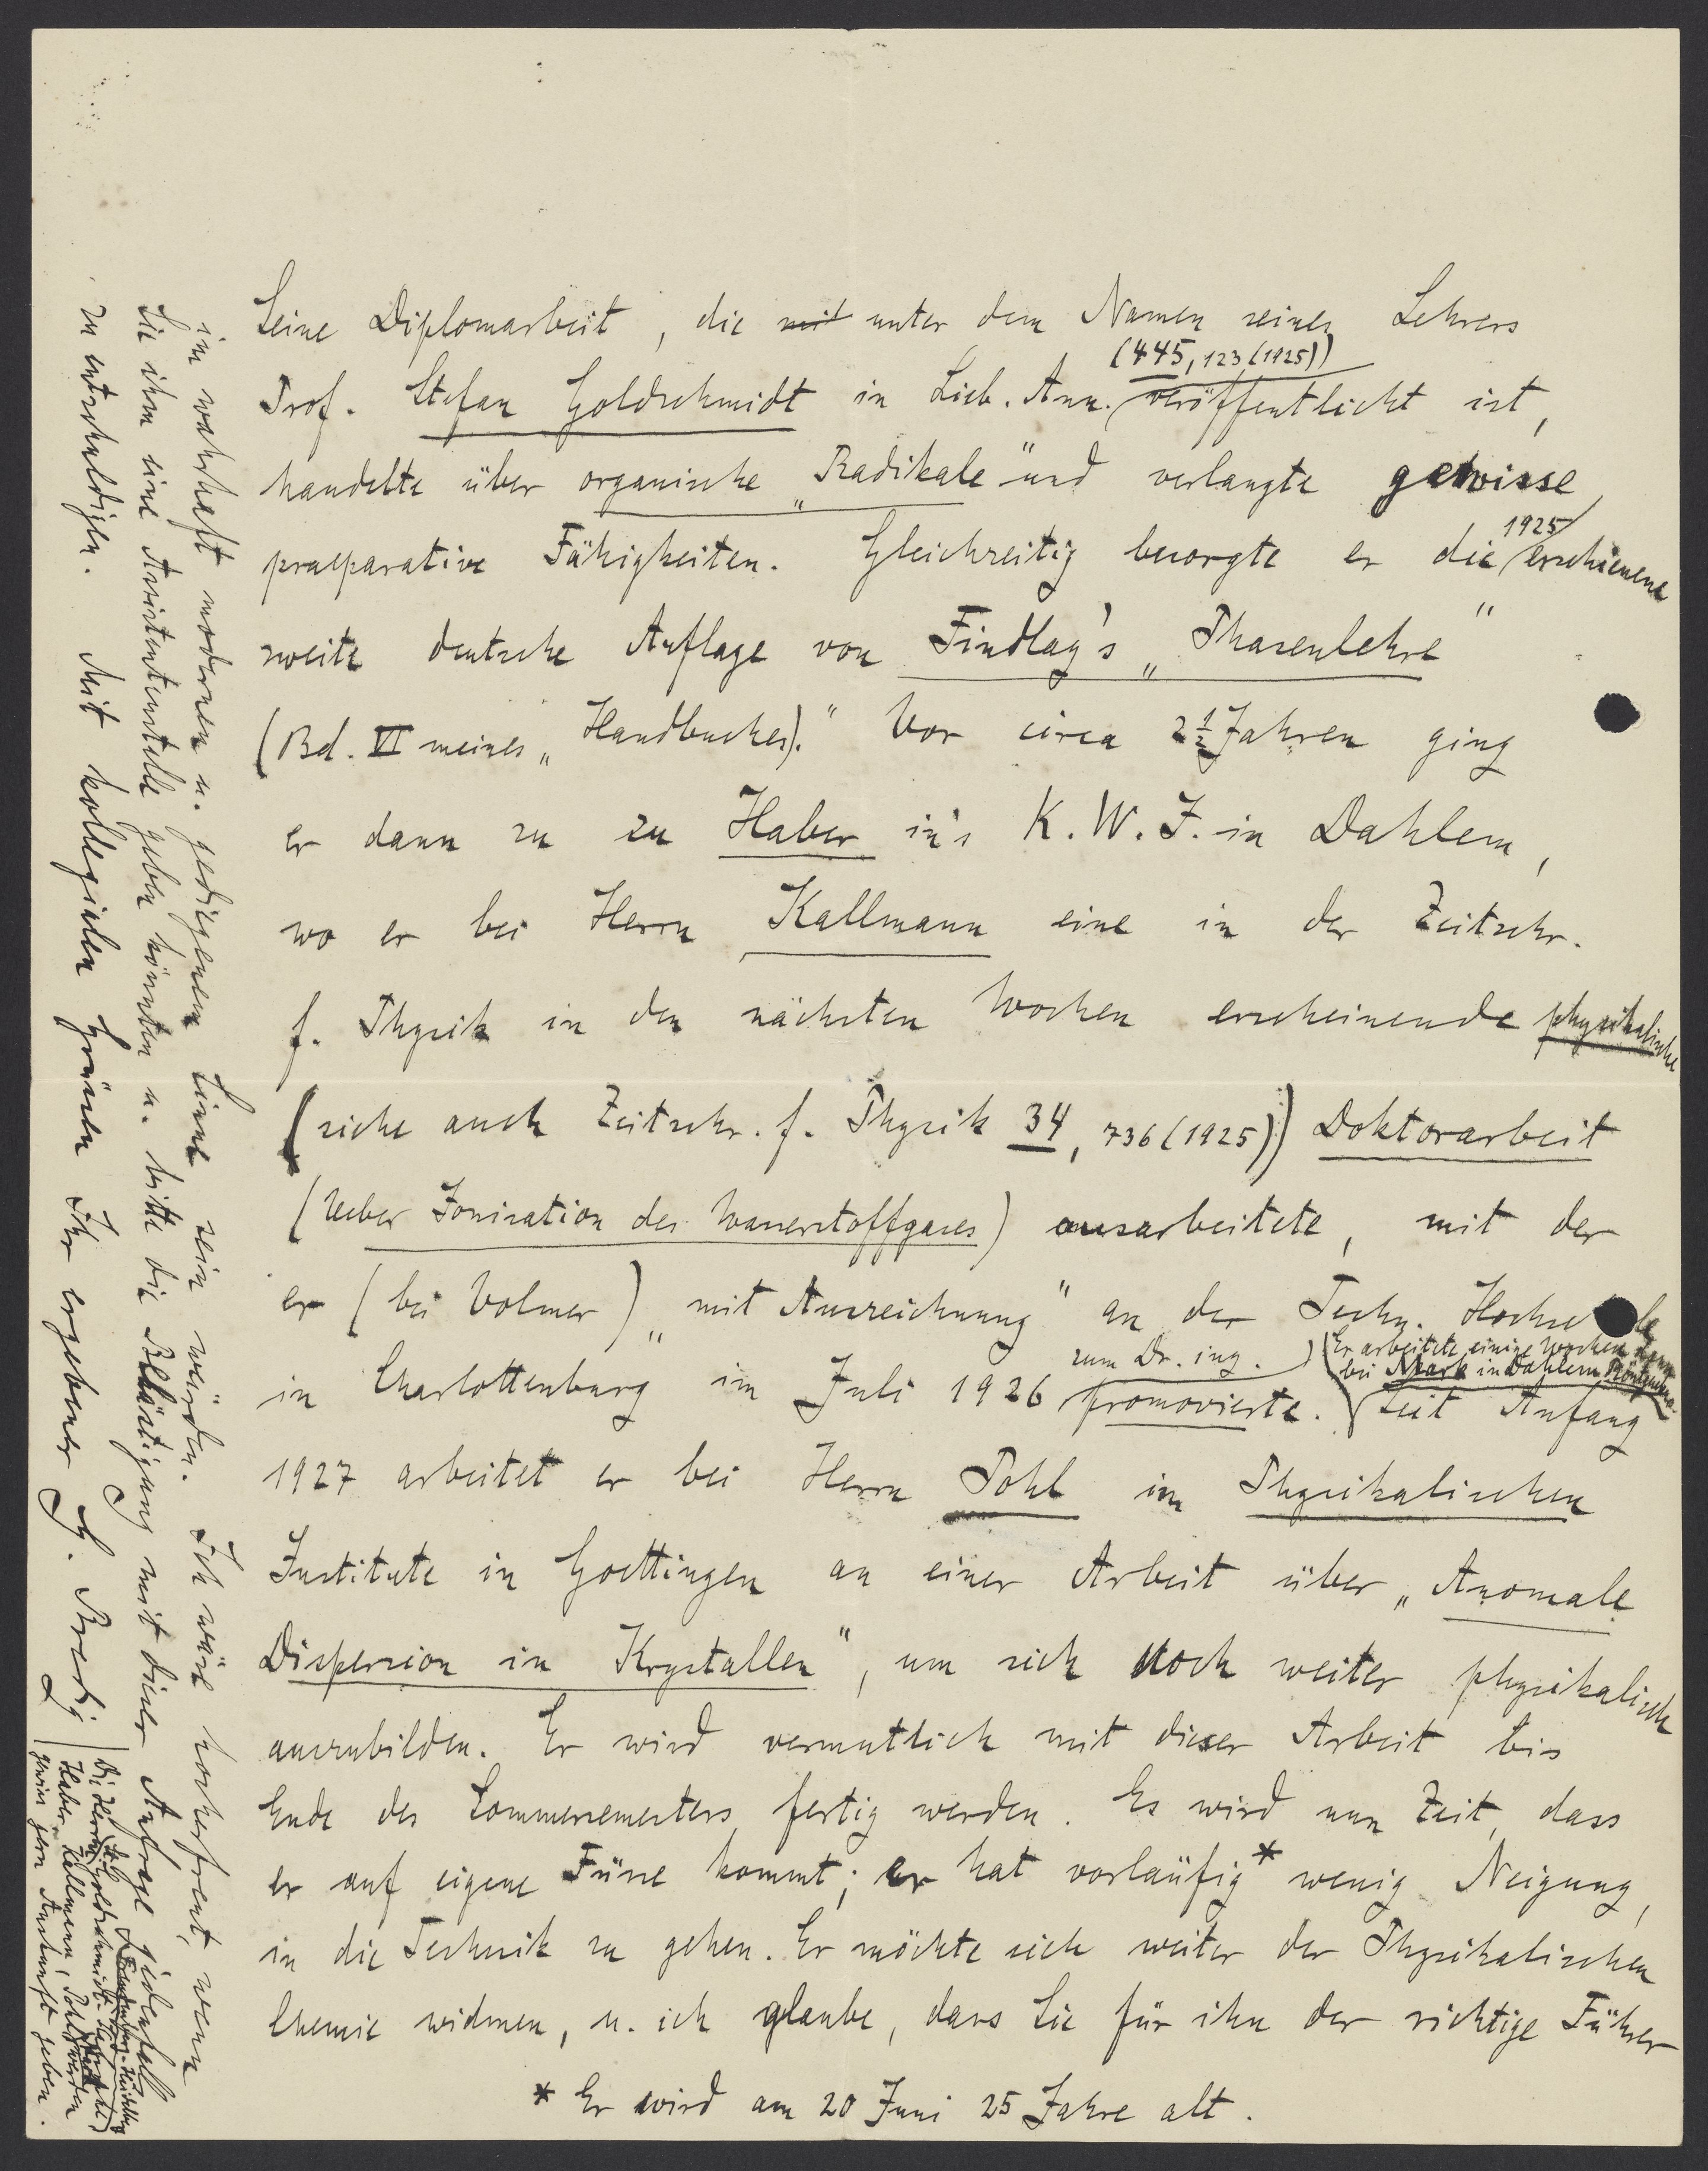 Seine Diplomarbeit, die mit unter dem Namen seines Lehrers
(445, 123 (1925))
Prof. Stefan Goldschmidt in Lieb. Ann. veröffentlicht ist,
handelte über organische „Radikale" und verlangte gewisse
praeparative Fähigkeiten. Gleichzeitig besorgte er die 1925 erschienene
zweite deutsche Auflage von Findlay's „Phasenlehre"
(Bd. VI meines „Handbuches)." Vor circa 2 1/2 Jahren ging
er dann zu zu Haber in's K. W. I. in Dahlem,
wo er bei Herrn Kallmann eine in der Zeitschr.
f. Physik in den nächsten Wochen erscheinende physikalische
(siehe auch Zeitschr. f. Physik 34, 736 (1925)) Doktorarbeit
(Ueber Ionisation des Wasserstoffgases) ausarbeitete, mit der
er (bei Volmer) „mit Auszeichnung" an der Techn. Hochschule
in Charlottenburg im Juli 1926 zum Dr. ing. promovierte. (Er arbeitete einige Wochen dann
bei Mark in Dahlem) Seit Anfang
1927 arbeitet er bei Herrn Pohl im Physikalischen
Institute in Goettingen an einer Arbeit über „Anomale
Dispersion in Krystallen", um sich noch weiter physikalisch
auszubilden. Er wird vermutlich mit dieser Arbeit bis
Ende des Sommersemesters fertig werden. Es wird nun Zeit, dass
er auf eigene Füsse kommt; er hat vorläufig* wenig Neigung,
in die Technik zu gehen. Er möchte sich weiter der Physikalischen
Chemie widmen, u. ich glaube, dass Sie für ihn der richtige Führer
* Er wird am 20 Juni 25 Jahre alt.
im wahrhaft modernen u. gediegenen Sinne sein würden. Ich wäre hocherfreut, wenn
Sie ihm eine Assistentenstelle geben könnten u. bitte die Belästigung mit dieser Anfrage jedenfalls
zu entschuldigen. Mit kollegialen Grüssen Ihr ergebener G. Bredig
Die Herren St. Goldschmidt
Haber, Kallmann, Pohl werden
gewiss gern Auskunft geben.